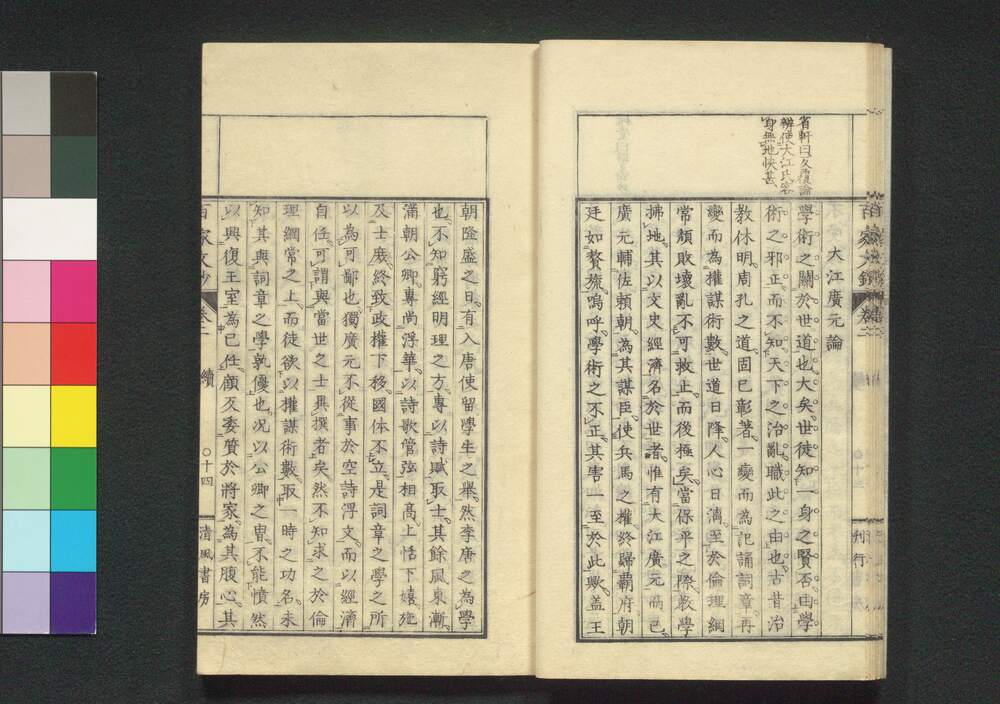 省軒曰反覆論
辨使大江氏容
身無地快甚
大江廣元論
學術之關於世道也大矣世徒知一身之賢否由學
術之邪正而不知天下之治亂職此之由也古昔治
教休明周孔之道固已彰著一變而為記誦詞章再
變而為權謀術數世道日降人心日漓至於倫理綱
常頹敗壞亂不可救止而後極矣當保平之際教學
掃地其以文史經濟名於世者惟有大江廣元而已
廣元輔佐賴朝為其謀臣使兵馬之權終歸霸府朝
廷如贅旒嗚呼學術之不正其害一至於此歟蓋王
刊行
朝隆盛之日有入唐使留學生之舉然李唐之為學
也不知窮經明理之方專以詩賦取士其餘風東漸
滿朝公卿專尚浮華以詩歌管弦相高上恬下嬉
及士庶終致政權下移國体不立是詞章之學之所
以為可鄙也獨廣元不從事於空詩浮文而以經濟
自任可謂與當世之士異撰者矣然不知求之於倫
理綱常之上而徒欲以權謀術數取一時之功名未
知其與詞章之學孰優也况以公卿之冑不能憤然
以興復王室為己任顧反委質於將家為其腹心其
百家文鈔 卷二 續 〇十四 清風書房